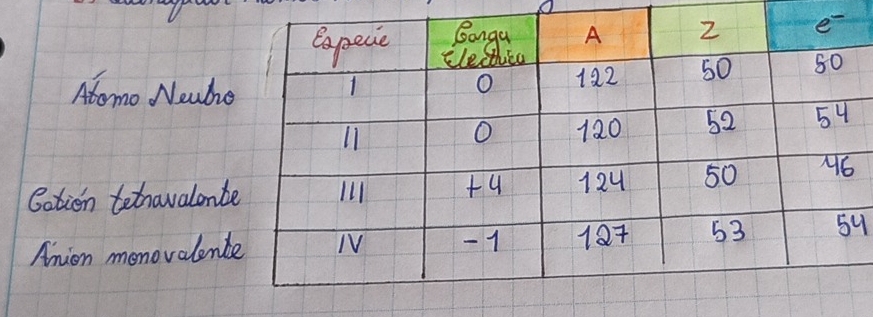 Especie Carga Electrica A Z e⁻
Átomo Neutro I 0 122 50 50
II 0 120 52 54
Catión tetravalente III +4 124 50 46
Anión monovalente IV -1 127 53 54